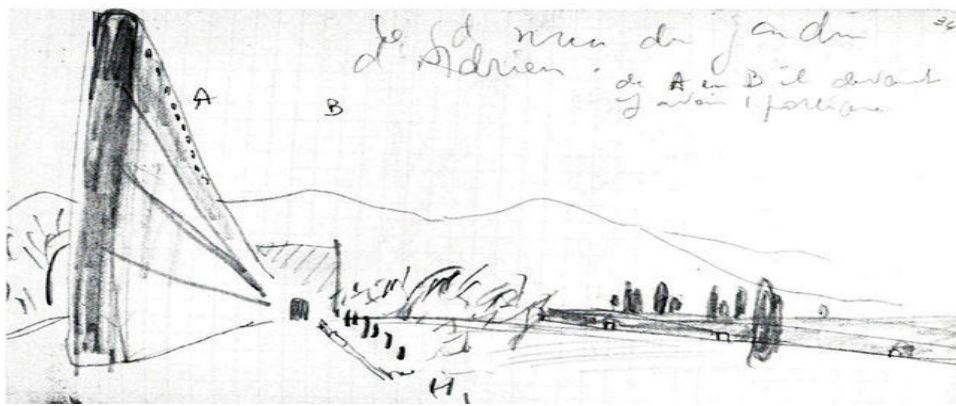 le gd mur du jardin
d'Adrien.
36
de A en B il devait
y avoir 1 portique
A
B